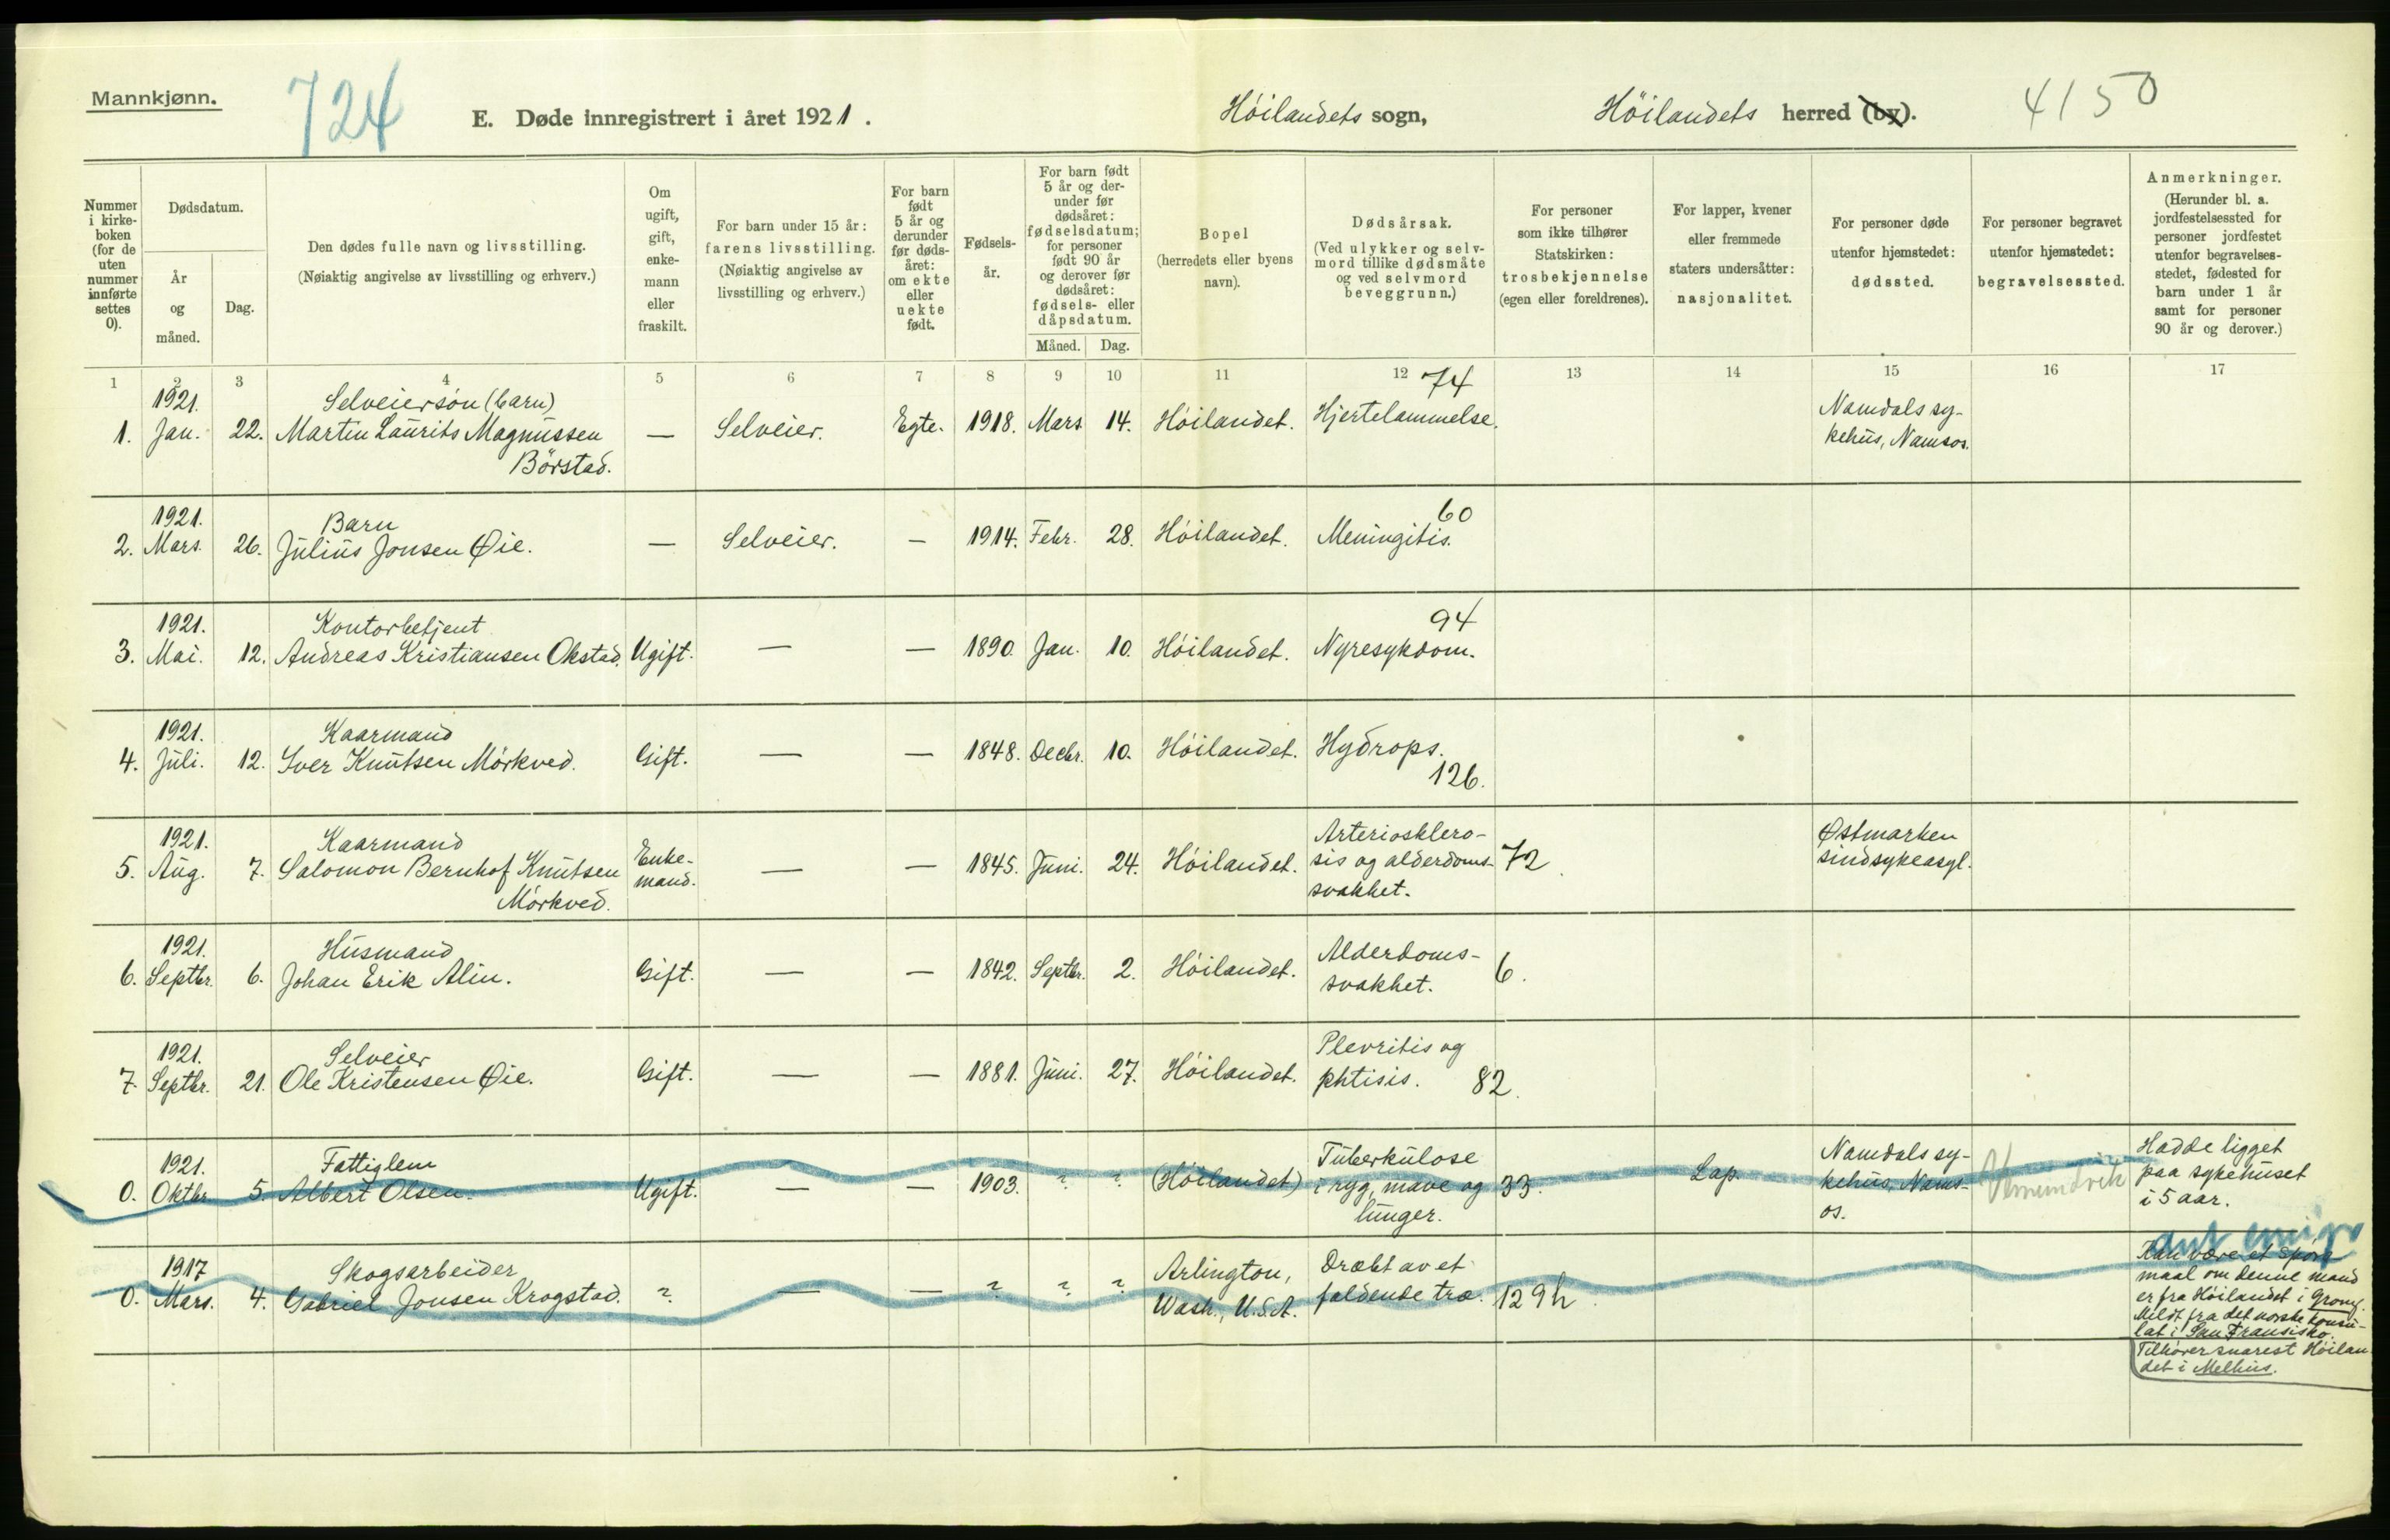 Mannkjønn.
724
E. Døde innregistrert i året 1921.
Höilandets sogn,
Höilandets herred (by).
4150
Nummer i kirke- boken (for de uten nummer innførte settes 0).
Dødsdatum.
År og måned.
Dag.
Den dødes fulle navn og livsstilling.
(Nøiaktig angivelse av livsstilling og erhverv.)
Om ugift, gift, enke- mann eller fraskilt.
For barn under 15 år: farens livsstilling.
(Nøiaktig angivelse av livsstilling og erhverv.)
For barn født 5 år og derunder før døds- året: om ekte eller uekte født.
Fødsels- år.
For barn født 5 år og der- under før dødsåret: fødselsdatum; for personer født 90 år og derover før dødsåret: fødsels- eller dåpsdatum.
Måned.
Dag.
Bopel
(herredets eller byens navn).
Dødsårsak.
(Ved ulykker og selv- mord tillike dødsmåte og ved selvmord beveggrunn.)
For personer som ikke tilhører Statskirken: trosbekjennelse (egen eller foreldrenes).
For lapper, kvener eller fremmede staters undersåtter: nasjonalitet.
For personer døde utenfor hjemstedet: dødssted.
For personer begravet utenfor hjemstedet: begravelsessted.
Anmerkninger.
(Herunder bl. a. jordfestelsessted for personer jordfestet utenfor begravelses- stedet, fødested for barn under 1 år samt for personer 90 år og derover.)
1 2 3 4 5 6 7 8 9 10 11 12 13 14 15 16 17
1921. Selveiersön (barn) 74 Namdals sy-
1. Jan. 22. Martin Laurits Magnussen — Selveier. Egte. 1918. Mars 14. Höilandet. Hjertelammelse. kehus, Namsos.
Börstad.
1921. Barn 60
2. Mars. 26. Julius Jonsen Øie. — Selveier. — 1914. Febr. 28. Höilandet. Meningitis.
1921. Kontorbetjent 94
3. Mai. 12. Andreas Kristiansen Okstad. Ugift. — — 1890. Jan. 10. Höilandet. Nyresykdom.
1921. Kaarmand
4. Juli. 12. Iver Knutsen Mörkved. Gift. — — 1848. Decbr. 10. Höilandet. Hydrops.
126.
1921. Kaarmand Enke- Arterioskléro- Østmarken
5. Aug. 7. Salomon Bernhof Knutsen mand. — — 1845. Juni. 24. Höilandet. sis og alderdoms- 72. sindsykeasyl.
Mörkved. svakhet.
1921. Husmand Alderdoms-
6. Septbr. 6. Johan Erik Alin. Gift. — — 1842. Septbr. 2. Höilandet. svakhet. 6.
1921. Selveier Plevritis og
7. Septbr. 21. Ole Kristensen Øie. Gift. — — 1881. Juni. 27. Höilandet. phtisis. 82.
1921. Fattiglem Tuberkulose Namdals sy- Hadde ligget
0. Oktbr. 5. Albert Olsen. Ugift. — — 1903. ? ? (Höilandet) i ryg, mave og 33. Lap. kehus, Nams- Vemundvik paa sykehuset
lunger. os. i 5 aar.
1917 Skogsarbeider Arlington, Dræbt av et
0. Mars. 4. Gabriel Jonsen Krogstad. ? — — ? ? ? Wash., U.S.A. faldende træ. 129h.
Kan være et spörs-
maal om denne mand
er fra Höilandet i Grong.
Meldt fra det norske konsu-
lat i San Fransisko.
Tilhörer snarest Höilan-
det i Melhus.